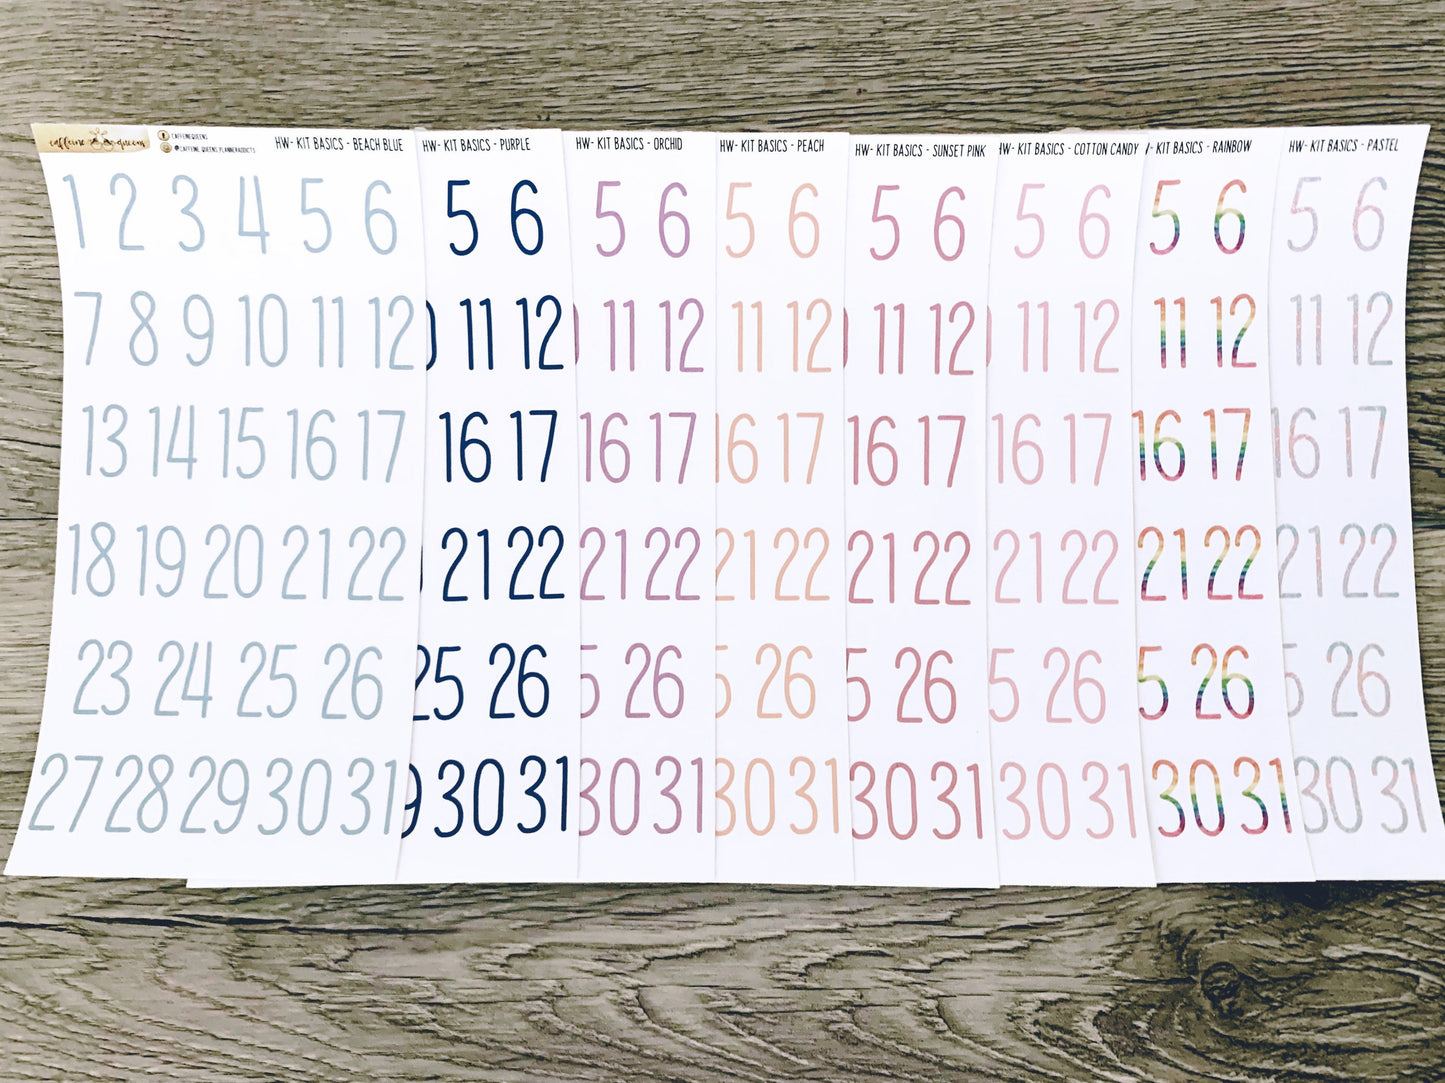 caffeine queens
CAFFEINEQUEENS
@CAFFEINE.QUEENS.PLANNERADDICTS
HW- KIT BASICS - BEACH BLUE
1 2 3 4 5 6
7 8 9 10 11 12
13 14 15 16 17
18 19 20 21 22
23 24 25 26
27 28 29 30 31
HW- KIT BASICS - PURPLE
5 6
11 12
16 17
21 22
25 26
30 31
HW- KIT BASICS - ORCHID
5 6
11 12
16 17
21 22
5 26
30 31
HW- KIT BASICS - PEACH
5 6
11 12
16 17
21 22
5 26
30 31
HW- KIT BASICS - SUNSET PINK
5 6
11 12
16 17
21 22
5 26
30 31
HW- KIT BASICS - COTTON CANDY
5 6
11 12
16 17
21 22
5 26
30 31
- KIT BASICS - RAINBOW
5 6
11 12
16 17
21 22
5 26
30 31
HW- KIT BASICS - PASTEL
5 6
11 12
16 17
21 22
5 26
30 31